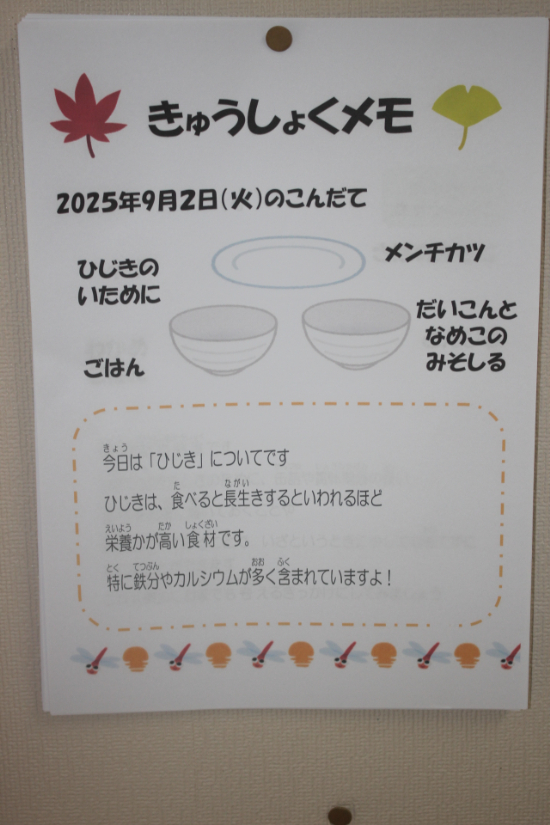 きゅうしょくメモ
2025年9月2日(火)のこんだて
メンチカツ
ひじきの
いために
だいこんと
なめこの
みそしる
ごはん
今日は「ひじき」についてです
ひじきは、食べると長生きするといわれるほど
栄養かが高い食材です。
特に鉄分やカルシウムが多く含まれていますよ！